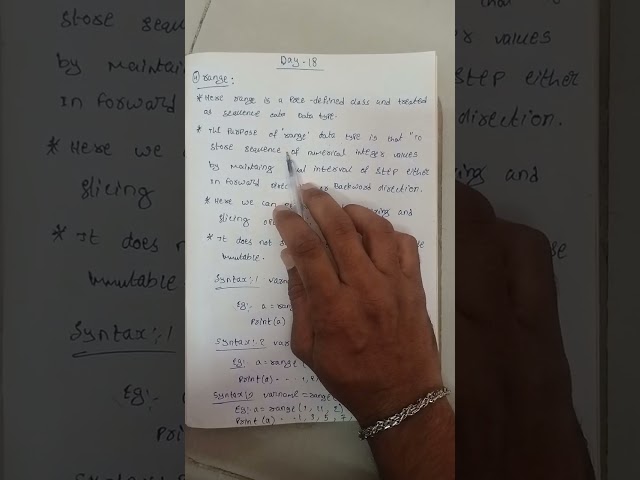 Day-18
④ range:
* Here range is a Pre-defined class and treated
as sequence cata Data type.
* The Purpose of 'range' data type is that "To
store sequence of numerical integer values
by maintaing interval of StEP either
In forward Backword direction.
* Here we can and
slicing
* It does not
Immutable.
Syntax:1 varn
Eg:- a=rang
Print(a)
Syntax:2 var
Eg: a=range(
Print(a) -
Syntax varname=range(
Eg:-a=range(1, 11, 2)
Print(a) - -1, 3, 5, 7,